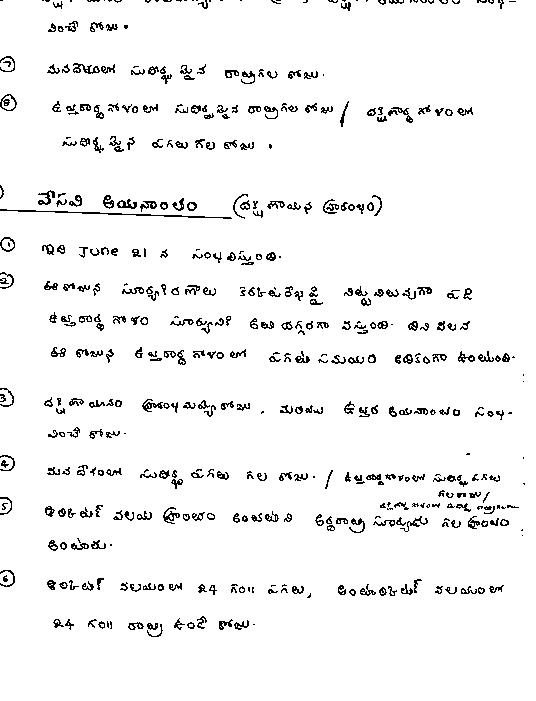 వించే రోజు.
⑦ మనదేశంలో సుదీర్ఘమైన రాత్రిగల రోజు.
⑧ ఉత్తరార్ధగోళంలో సుదీర్ఘమైన రాత్రిగల రోజు / దక్షిణార్ధగోళంలో
సుదీర్ఘమైన పగలు గల రోజు.
వేసవి ఆయనాంతం (దక్షిణాయన ప్రారంభం)
① ఇది June 21 న సంభవిస్తుంది.
② ఈ రోజున సూర్యకిరణాలు కర్కటరేఖపై నిట్టనిలువుగా పడి
ఉత్తరార్ధగోళం సూర్యునికి అతి దగ్గరగా వస్తుంది. దీని వలన
ఈ రోజున ఉత్తరార్ధగోళంలో పగటి సమయం అధికంగా ఉంటుంది.
③ దక్షిణాయనం ప్రారంభమయ్యే రోజు. మరియు ఉత్తర ఆయనాంతం సంభ-
వించే రోజు.
④ మన దేశంలో సుదీర్ఘ పగలు గల రోజు. / ఉత్తరార్ధగోళంలో సుదీర్ఘ పగలు
గల రోజు /
⑤ ఆర్కిటిక్ వలయ ప్రాంతం అంతటిని అర్ధరాత్రి సూర్యుడు గల ప్రాంతం
అంటారు.
⑥ ఆర్కిటిక్ వలయంలో 24 గం॥ పగలు, అంటార్కిటిక్ వలయంలో
24 గం॥ రాత్రి ఉండే రోజు.